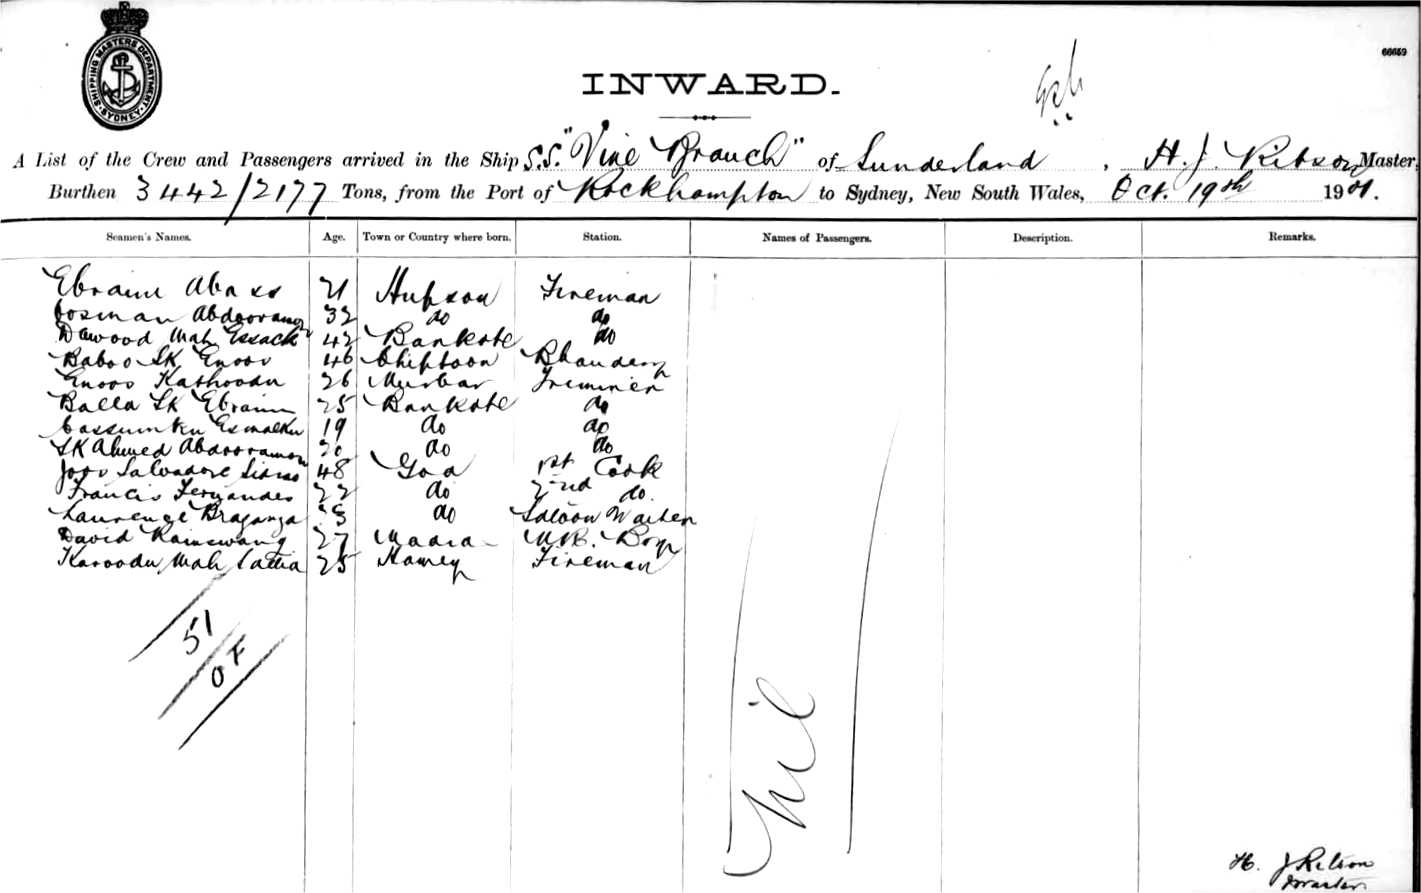 SHIPPING MASTERS DEPARTMENT. SYDNEY
66659
INWARD.
A List of the Crew and Passengers arrived in the Ship S.S. "Vine Branch" of Sunderland, H. J. Ritson Master,
Burthen 3442/2177 Tons, from the Port of Rockhampton to Sydney, New South Wales, Oct. 19th 1901.
Seamen's Names. Age. Town or Country where born. Station. Names of Passengers. Description. Remarks.
Ebraim Abass 21 Fireman
Oosman Abdooraman 32 do do
Dawood Mah Essack 42 Bankote do
Baboo Sk Enoos 46 Chiploon Bhandary
Enoos Kathoodu 26 Murbar Trimmer
Balla Sk Ebraim 25 Bankote do
Cassumku Esmalku 19 do do
SK Ahmed Abdooramon 20 do do
Joos Salvadore 48 Goa 1st Cook
Francis Fernandes 22 do 2nd do.
Laurence Braganza do Saloon Waiter
David 27 Boy
Karoodu Mah 25 Fireman
51
OF
Nil
H. J Ritson
Master